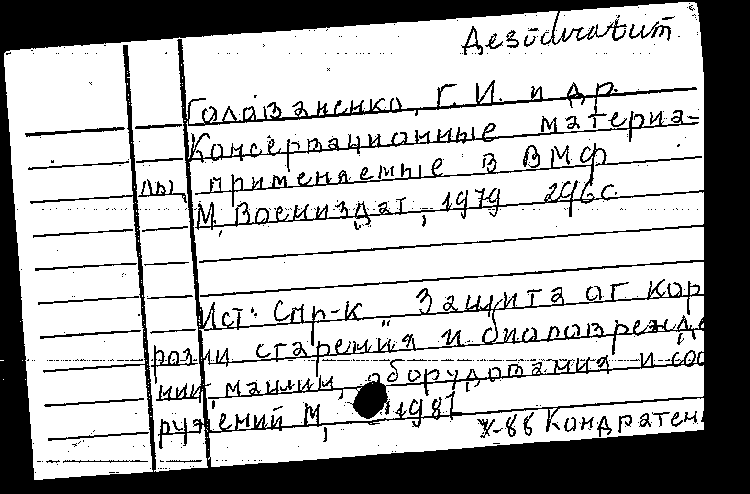 Дезидeratum
Голованенко, Г. И. и др.
Консервационные материа-
лы, применяемые в ВМФ
М, Воениздат, 1979 296с.
Ист: Спр-к „Защита от кор
розии старения и биоповрежде
ний, машин, оборудования и соо
ружений М, 1987
X-88 Кондратен